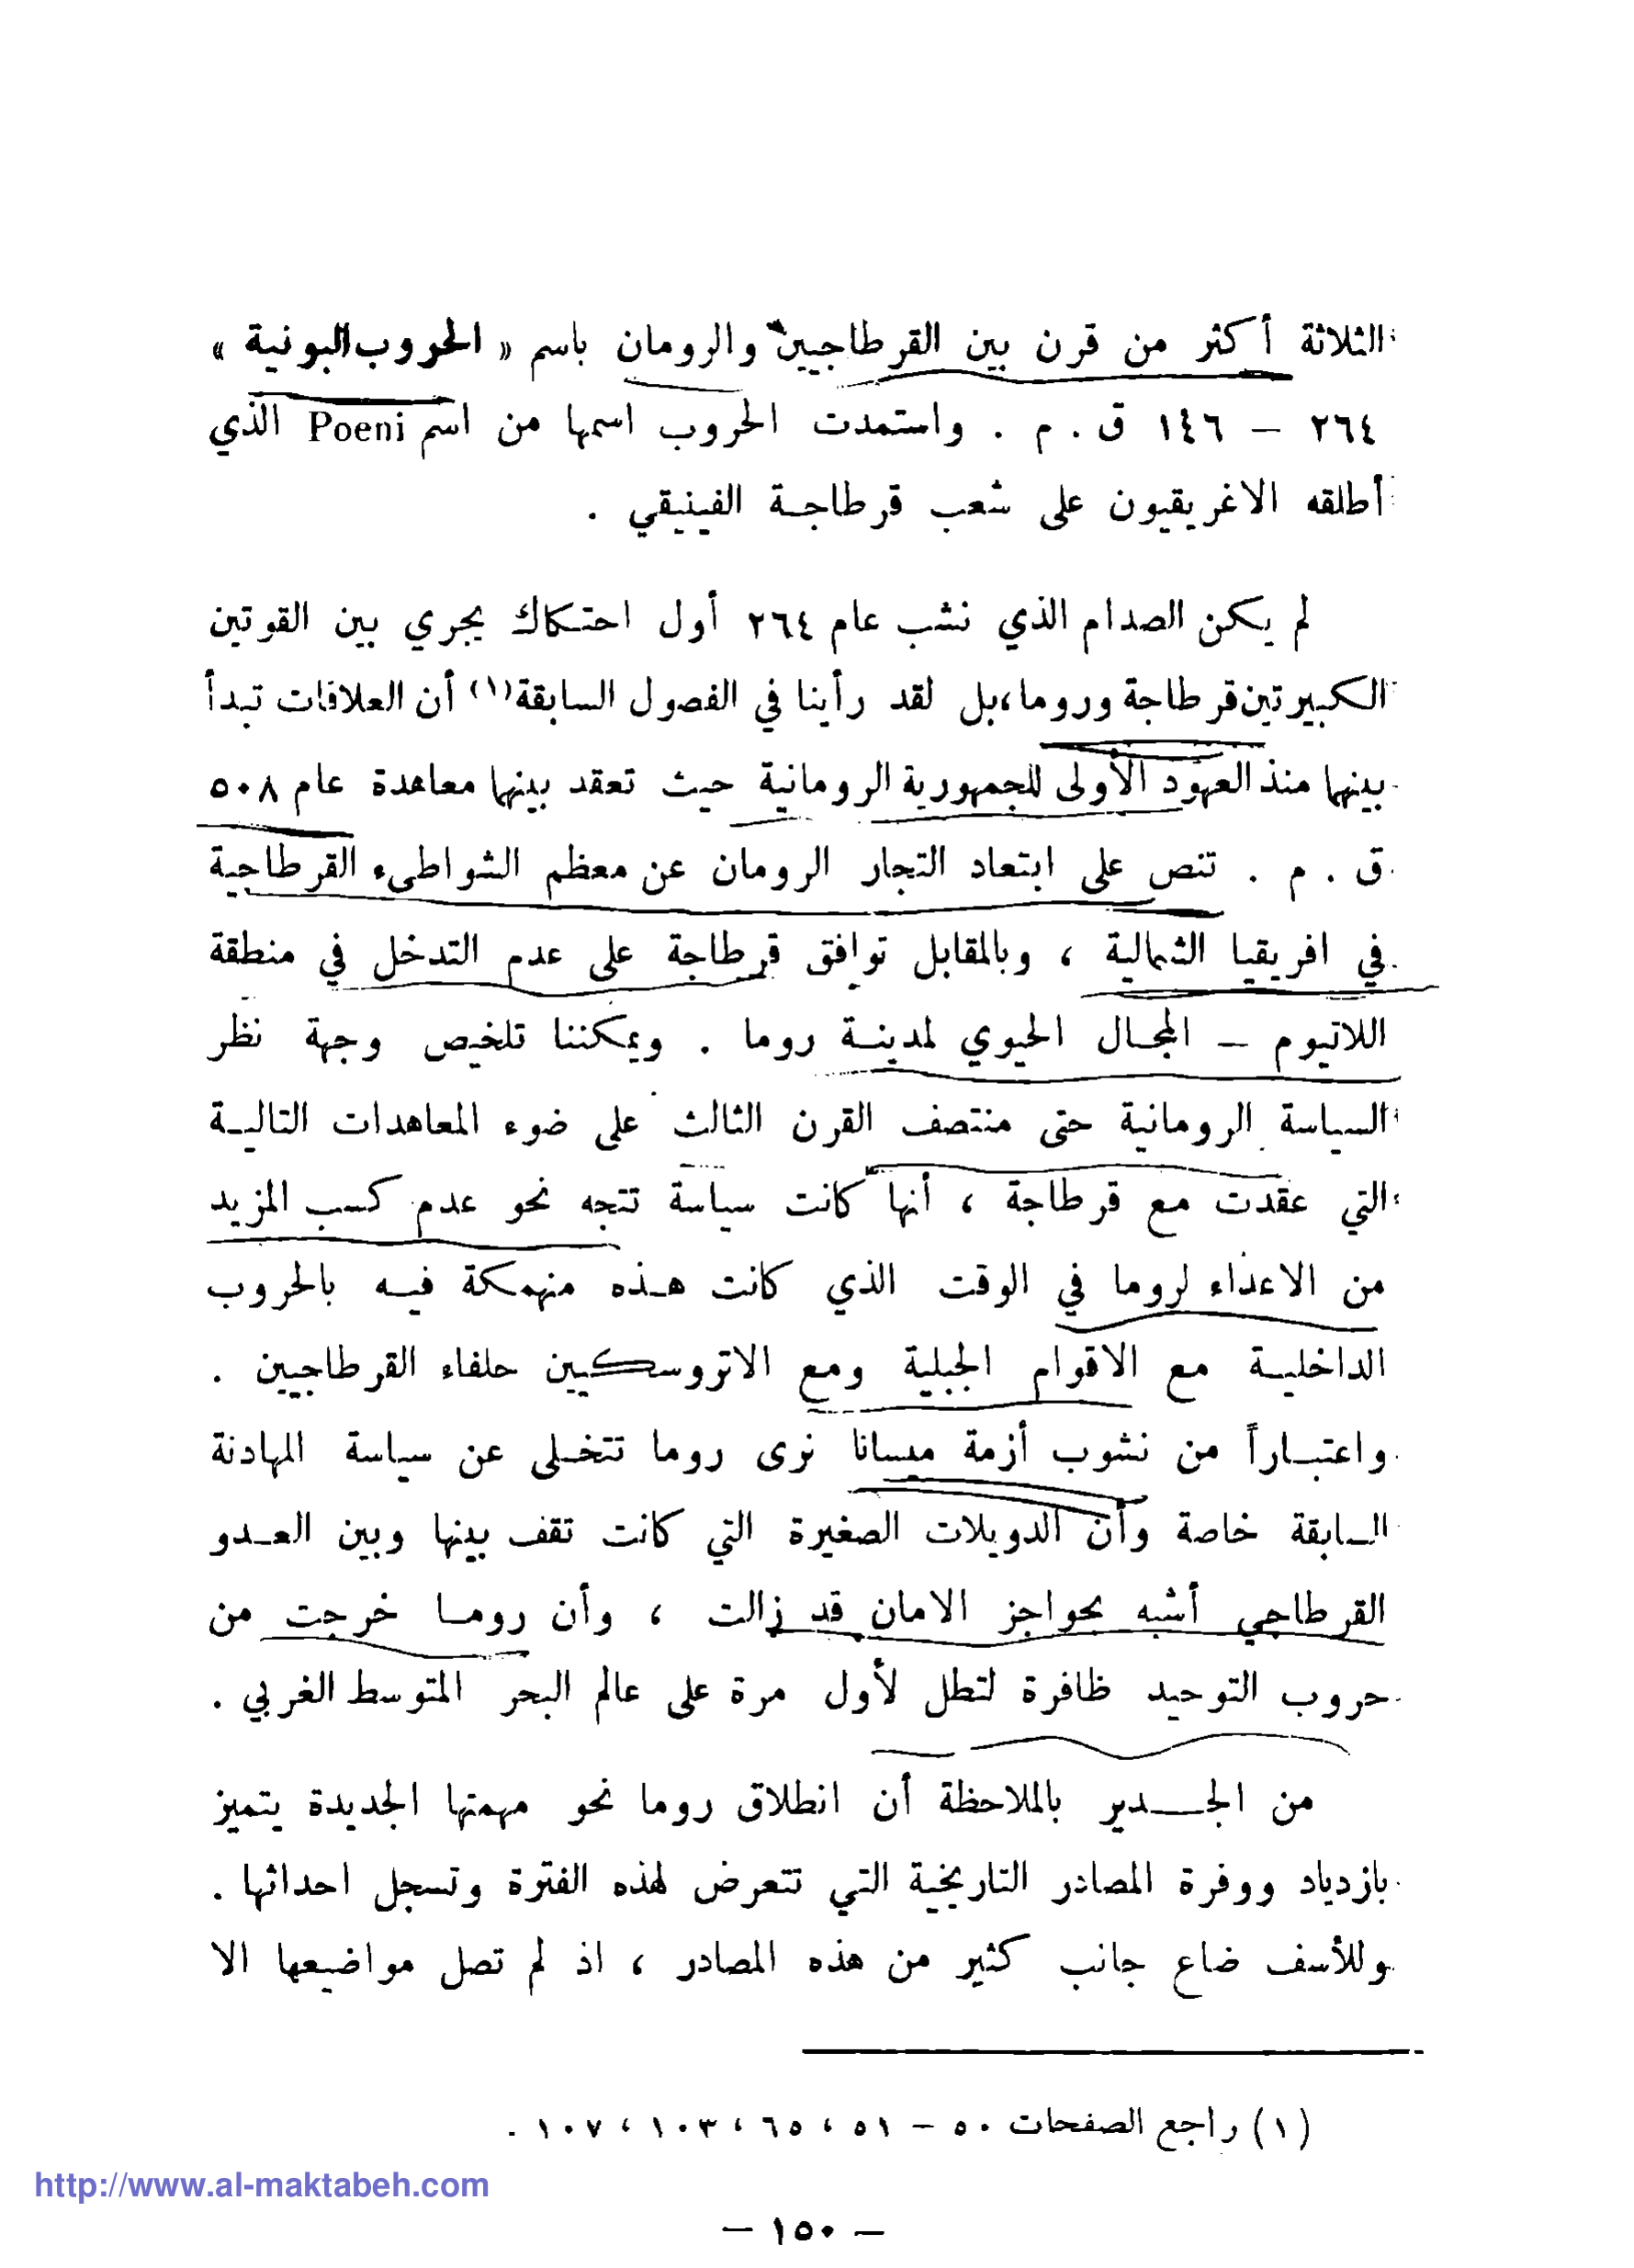 الثلاثة أكثر من قرن بين القرطاجيين والرومان باسم « الحروب البونية »
٢٦٤ – ١٤٦ ق . م . واستمدت الحروب اسمها من اسم Poeni الذي
أطلقه الاغريقيون على شعب قرطاجة الفينيقي .
لم يكن الصدام الذي نشب عام ٢٦٤ أول احتكاك يجري بين القوتين
الكبيرتين قرطاجة وروما، بل لقد رأينا في الفصول السابقة(١) أن العلاقات تبدأ
بينهما منذ العهود الأولى للجمهورية الرومانية حيث تعقد بينهما معاهدة عام ٥٠٨
ق . م . تنص على ابتعاد التجار الرومان عن معظم الشواطىء القرطاجية
في افريقيا الشمالية ، وبالمقابل توافق قرطاجة على عدم التدخل في منطقة
اللاتيوم – المجال الحيوي لمدينة روما . ويمكننا تلخيص وجهة نظر
السياسة الرومانية حتى منتصف القرن الثالث على ضوء المعاهدات التالية
التي عقدت مع قرطاجة ، أنها كانت سياسة تتجه نحو عدم كسب المزيد
من الاعداء لروما في الوقت الذي كانت هذه منهمكة فيه بالحروب
الداخلية مع الاقوام الجبلية ومع الاتروسكيين حلفاء القرطاجيين .
واعتباراً من نشوب أزمة مسانا نرى روما تتخلى عن سياسة المهادنة
السابقة خاصة وأن الدويلات الصغيرة التي كانت تقف بينها وبين العدو
القرطاجي أشبه بحواجز الامان قد زالت ، وأن روما خرجت من
حروب التوحيد ظافرة لتطل لأول مرة على عالم البحر المتوسط الغربي .
من الجدير بالملاحظة أن انطلاق روما نحو مهمتها الجديدة يتميز
بازدياد ووفرة المصادر التاريخية التي تتعرض لهذه الفترة وتسجل احداثها .
وللأسف ضاع جانب كثير من هذه المصادر ، اذ لم تصل مواضيعها الا
(١) راجع الصفحات ٥٠ – ٥١ ، ٦٥ ، ١٠٣ ، ١٠٧ .
http://www.al-maktabeh.com
– ١٥٠ –